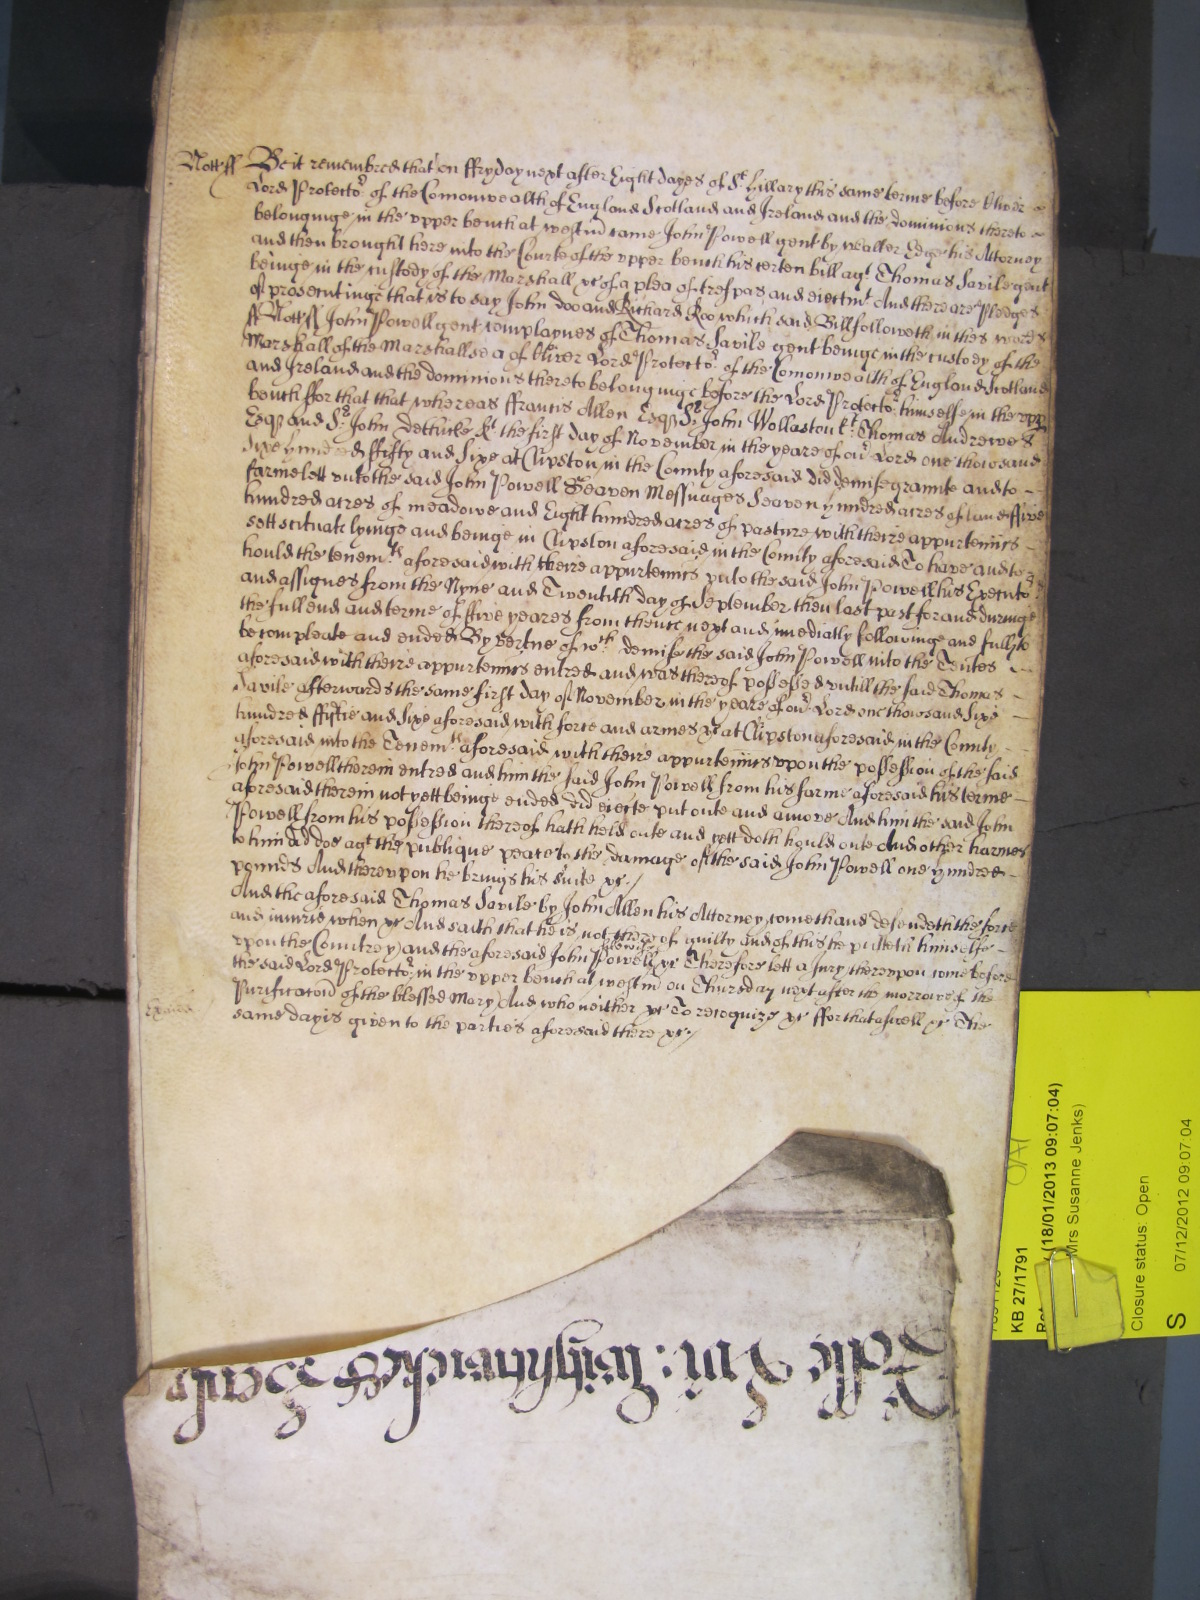 Nott ss Be it remembred that on ffryday next after Eight dayes of St. Hillary this same terme before Oliver
Lord Protector of the Comonwealth of England Scotland and Ireland and the dominions thereto
belonginge in the vpper bench at westm came John Powell gent by Edge his Attorney
and then brought here into the Courte of the vpper bench his certen bill agt Thomas Savile gent
beinge in the custody of the Marshall &c of a plea of trespas and eiectmt And there are Pledges
of prosecutinge that is to say John doo and Richard Roo which said Bill followeth in thes words
ss Nott ss John Powell gent complaynes of Thomas Savile gent beinge in the custody of the
Marshall of the Marshallsea of Oliver Lord Protector of the Comonwealth of England Scotland
and Ireland and the dominions thereto belonginge before the Lord Protector himselfe in the vpp
bench ffor that that whereas ffrancis Allen Esqr Sr John Wollaston kt Thomas Andrewes
Esqr and Sr John dethicke kt the first day of November in the yeare of our Lord one thowsand
Sixe hundred ffifty and Sixe at Clipston in the County aforesaid did demise graunte and to
farme lett vnto the said John Powell Seaven Messuages Seaven hundred acres of land ffive
hundred acres of meadowe and Eight hundred acres of pasture with theire appurtennces
sett scituate lyinge and beinge in Clipston aforesaid in the County aforesaid To have and to
hould the tenemts aforesaid with theire appurtennces vnto the said John Powell his Executors
and assignes from the Nyne and Twentith day of September then last past for and duringe
the full end and terme of ffive yeares from thence next and imediatly followinge and fully to
be compleate and ended By vertue of wch demise the said John Powell into the Tentes
aforesaid with theire appurtennces entred and was thereof possessed vntill the said Thomas
Savile afterwards the same first day of November in the yeare of our Lord one thowsand Sixe
hundred ffiftie and Sixe aforesaid with force and armes &c at Clipston aforesaid in the County
aforesaid into the Tenemts aforesaid with theire appurtennces vpon the possession of the said
John Powell therein entred and him the said John Powell from his farme aforesaid his terme
aforesaid therein not yett beinge ended did eiecte put oute and amove And him the said John
Powell from his possession thereof hath held oute and yett doth hould oute And other harmes
to him did doe agt the publique peace to the damage of the said John Powell one hundred
pounds And therevpon he brings his suite &c /
And the aforesaid Thomas Savile by John Allen his Attorney cometh and defendeth the force
and iniurie when &c And saith that he is not thereof guilty and of this he putteth himselfe
vpon the Countrey) and the aforesaid John Powell likewise &c Therefore lett a Jury therevpon come before
the said Lord Protector in the vpper bench at westm on Thursday next after the morrowe of the
Purificacon of the blessed Mary And who neither &c To recognize &c ffor that aswell &c The
same day is given to the parties aforesaid there &c /
KB 27/1791
(18/01/2013 09:07:04)
Mrs Susanne Jenks)
Closure status: Open
S
07/12/2012 09:07:04